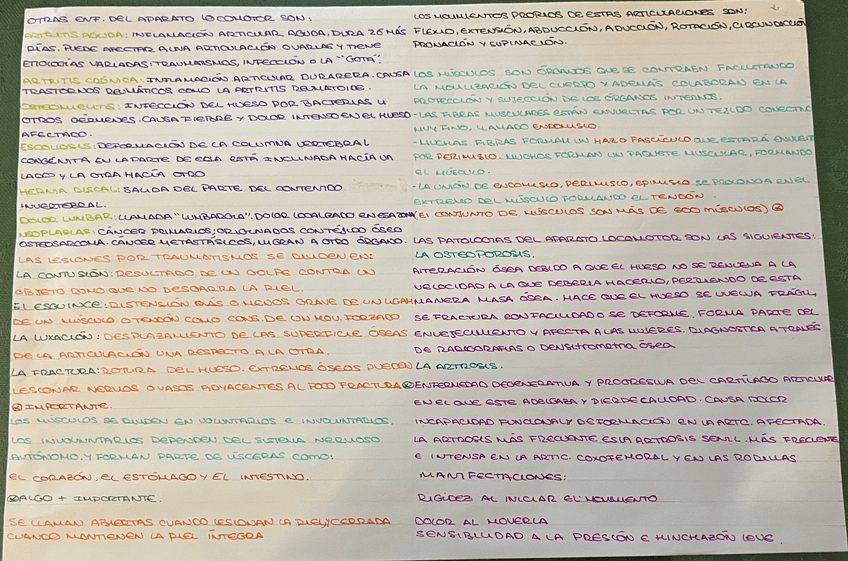 OTRAS ENF. DEL APARATO LOCOMOTOR SON:
ARTRITIS AGUDA: INFLAMACIÓN ARTICULAR AGUDA, DURA 2 6 MÁS
DÍAS. PUEDE AFECTAR A UNA ARTICULACIÓN O VARIAS Y TIENE
ETIOLOGÍAS VARIADAS: TRAUMATISMOS, INFECCIÓN O LA "GOTA".
ARTRITIS CRÓNICA: INFLAMACIÓN ARTICULAR DURARERA. CAUSA
TRASTORNOS REUMÁTICOS COMO LA ARTRITIS REUMATOIDE.
OSTEOMIELITIS: INFECCIÓN DEL HUESO POR BACTERIAS U
OTROS GÉRMENES. CAUSA FIEBRE Y DOLOR INTENSO EN EL HUESO
AFECTADO.
ESCOLIOSIS: DEFORMACIÓN DE LA COLUMNA VERTEBRAL
CONGÉNITA EN LA PARTE DE ELLA ESTÁ INCLINADA HACÍA UN
LADO Y LA OTRA HACÍA OTRO
HERNIA DISCAL: SALIDA DEL PARTE DEL CONTENIDO
INVERTEBRAL.
DOLOR LUMBAR: LLAMADA "LUMBAROLA". DOLOR LOCALIZADO EN ESA ZONA
NEOPLASIAS: CÁNCER PRIMARIOS: ORIGINADOS CON TEJIDO ÓSEO
OSTEOSARCOMA. CÁNCER METASTÁSICOS, MIGRAN A OTRO ÓRGANO.
LAS LESIONES POR TRAUMATISMOS SE DIVIDEN EN:
LA CONTUSIÓN: RESULTADO DE UN GOLPE CONTRA UN
OBJETO ROMO QUE NO DESGARRA LA PIEL.
EL ESGUINCE: DISTENSIÓN MÁS O MENOS GRAVE DE UN LIGAM
DE UN MÚSCULO O TENDÓN COMO CONS. DE UN MOV. FORZADO
LA LUXACIÓN: DESPLAZAMIENTO DE LAS SUPERFICIE ÓSEAS
DE LA ARTICULACIÓN UNA RESPECTO A LA OTRA.
LA FRACTURA: ROTURA DEL HUESO. EXTREMOS ÓSEOS PUEDEN
LESIONAR NERVIOS O VASOS ADYACENTES AL FOCO FRACTURA
IMPORTANTE.
LOS MÚSCULOS SE DIVIDEN EN VOLUNTARIOS E INVOLUNTARIOS.
LOS INVOLUNTARIOS DEPENDEN DEL SISTEMA NERVIOSO
AUTÓNOMO, Y FORMAN PARTE DE VÍSCERAS COMO:
EL CORAZÓN, EL ESTÓMAGO Y EL INTESTINO.
ALGO + IMPORTANTE.
SE LLAMAN ABIERTAS CUANDO LESIONAN LA PIEL, Y CERRADA
CUANDO MANTIENEN LA PIEL ÍNTEGRA
LOS MOVIMIENTOS PROPIOS DE ESTAS ARTICULACIONES SON:
FLEXIO, EXTENSIÓN, ABDUCCIÓN, ADUCCIÓN, ROTACIÓN, CIRCUNDUCCIÓN
PRONACIÓN Y SUPINACIÓN.
LOS MÚSCULOS SON ÓRGANOS QUE SE CONTRAEN FACILITANDO
LA MOVILIZACIÓN DEL CUERPO Y ADEMÁS COLABORAN EN LA
PROTECCIÓN Y SUJECCIÓN DE LOS ÓRGANOS INTERNOS.
-LAS FIBRAS MUSCULARES ESTÁN ENVUELTAS POR UN TEJIDO CONECTIVO
MUY FINO, LLAMADO ENDOMISIO.
-MUCHAS FIBRAS FORMAN UN HAZO FASCÍCULO QUE ESTARÁ ENVUELTO
POR PERIMISIO. MUCHOS FORMAN UN PAQUETE MUSCULAR, FORMANDO
EL MÚSCULO.
-LA UNIÓN DE ENDOMISIO, PERIMISIO, EPIMISIO SE PROLONGA EN EL
EXTREMO DEL MÚSCULO FORMANDO EL TENDÓN.
(EL CONJUNTO DE MÚSCULOS SON MÁS DE 600 MÚSCULOS)
LAS PATOLOGÍAS DEL APARATO LOCOMOTOR SON LAS SIGUIENTES:
LA OSTEOPOROSIS.
ALTERACIÓN ÓSEA DEBIDO A QUE EL HUESO NO SE RENUEVA A LA
VELOCIDAD A LA QUE DEBERIA HACERLO, PERDIENDO DE ESTA
MANERA MASA ÓSEA. HACE QUE EL HUESO SE VUELVA FRÁGIL,
SE FRACTURA CON FACILIDAD O SE DEFORME. FORMA PARTE DEL
ENVEJECIMIENTO Y AFECTA A LAS MUJERES. DIAGNOSTICA A TRAVÉS
DE RADIOGRAFIAS O DENSITROMETRIA ÓSEA
LA ARTROSIS.
ENFERMEDAD DEGENERATIVA Y PROGRESIVA DEL CARTÍLAGO ARTICULAR
EN EL QUE ESTE ADELGAZA Y PIERDE CALIDAD. CAUSA DOLOR
INCAPACIDAD FUNCIONAL Y DEFORMACIÓN EN LA ARTIC. AFECTADA.
LA ARTROSIS MÁS FRECUENTE ES LA ARTROSIS SENIL. MÁS FRECUENTE
E INTENSA EN LA ARTIC. COXOFEMORAL Y EN LAS RODILLAS
MANIFECTACIONES:
RIGIDEZ AL INICIAR EL MOVIMIENTO
DOLOR AL MOVERLA
SENSIBILIDAD A LA PRESIÓN E HINCHAZÓN LEVE.